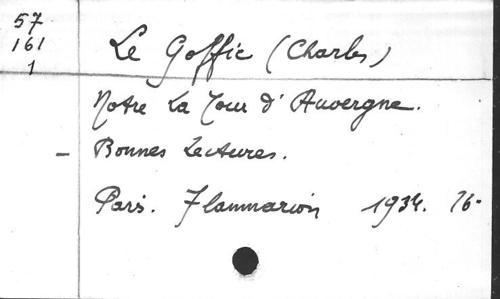 57
161
1
Le Goffic (Charles)
Notre La Tour d'Auvergne.
– Bonnes Lectures.
Paris. Flammarion 1934. 16-